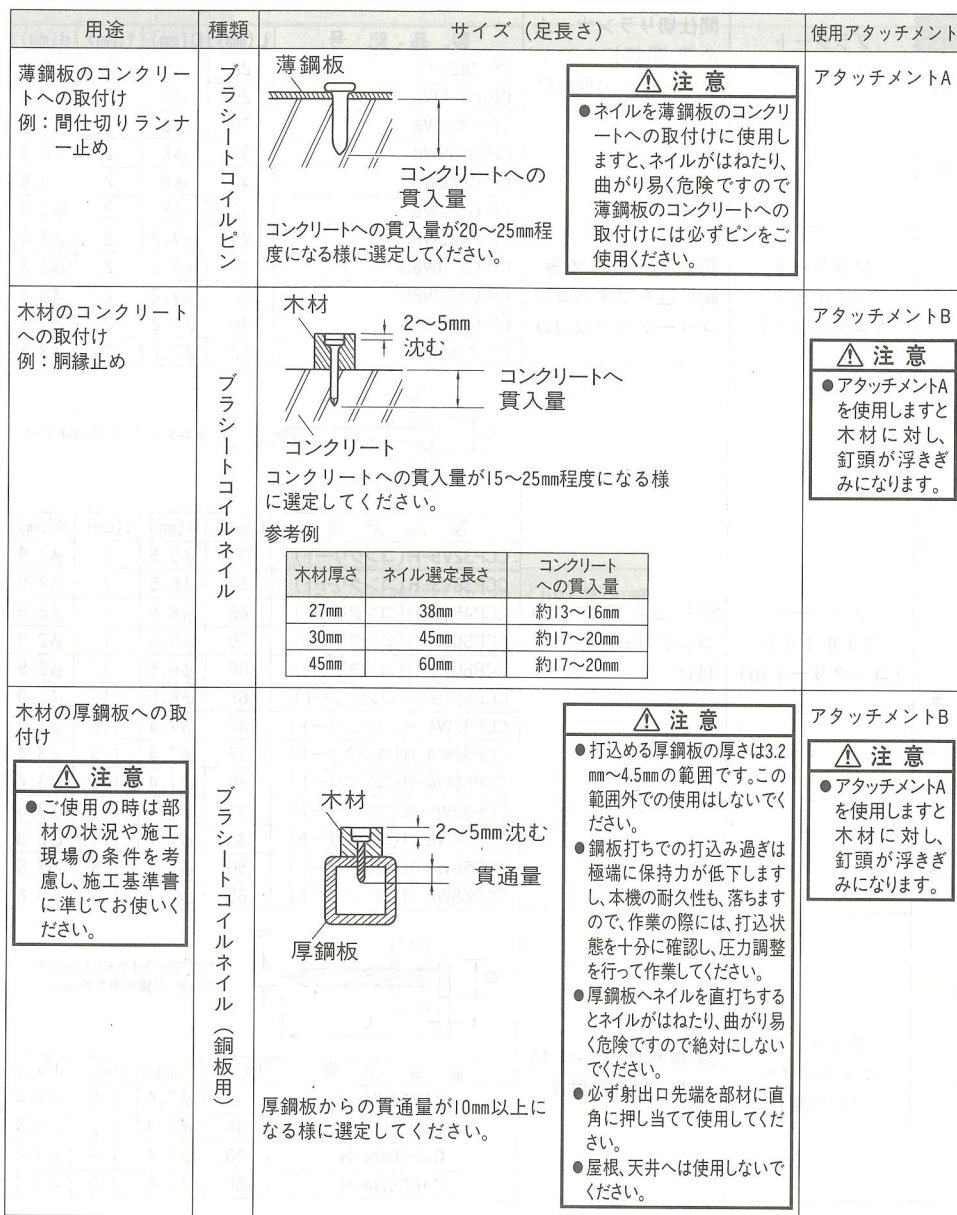 用途
種類
サイズ（足長さ）
使用アタッチメント
薄鋼板のコンクリー
トへの取付け
例：間仕切りランナ
ー止め
ブラシートコイルピン
薄鋼板
コンクリートへの
貫入量
コンクリートへの貫入量が20〜25mm程
度になる様に選定してください。
⚠ 注意
●ネイルを薄鋼板のコンクリ
ートへの取付けに使用し
ますと、ネイルがはねたり、
曲がり易く危険ですので
薄鋼板のコンクリートへの
取付けには必ずピンをご
使用ください。
アタッチメントA
木材のコンクリート
への取付け
例：胴縁止め
ブラシートコイルネイル
木材
2〜5mm
沈む
コンクリートへ
貫入量
コンクリート
コンクリートへの貫入量が15〜25mm程度になる様
に選定してください。
参考例
木材厚さ ネイル選定長さ コンクリート
への貫入量
27mm 38mm 約13〜16mm
30mm 45mm 約17〜20mm
45mm 60mm 約17〜20mm
アタッチメントB
⚠ 注意
●アタッチメントA
を使用しますと
木材に対し、
釘頭が浮きぎ
みになります。
木材の厚鋼板への取
付け
⚠ 注意
●ご使用の時は部
材の状況や施工
現場の条件を考
慮し、施工基準書
に準じてお使いく
ださい。
ブラシートコイルネイル（銅板用
木材
2〜5mm沈む
貫通量
厚鋼板
厚鋼板からの貫通量が10mm以上に
なる様に選定してください。
⚠ 注意
●打込める厚鋼板の厚さは3.2
mm〜4.5mmの範囲です。この
範囲外での使用はしないでく
ださい。
●鋼板打ちでの打込み過ぎは
極端に保持力が低下します
し、本機の耐久性も、落ちます
ので、作業の際には、打込状
態を十分に確認し、圧力調整
を行って作業してください。
●厚鋼板へネイルを直打ちする
とネイルがはねたり、曲がり易
く危険ですので絶対にしない
でください。
●必ず射出口先端を部材に直
角に押し当てて使用してくだ
さい。
●屋根、天井へは使用しないで
ください。
アタッチメントB
⚠ 注意
●アタッチメントA
を使用しますと
木材に対し、
釘頭が浮きぎ
みになります。